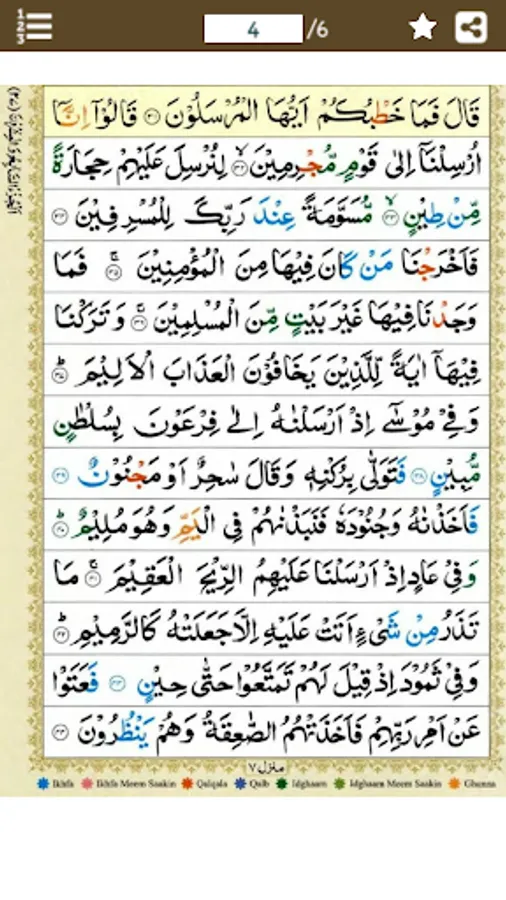 4 /6
قَالَ فَمَا خَطْبُكُمْ اَيُّهَا الْمُرْسَلُوْنَ ۝۳۱ قَالُوْۤا اِنَّاۤ
اُرْسِلْنَاۤ اِلٰى قَوْمٍ مُّجْرِمِيْنَ ۙ۝۳۲ لِنُرْسِلَ عَلَيْهِمْ حِجَارَةً
مِّنْ طِيْنٍ ۙ۝۳۳ مُّسَوَّمَةً عِنْدَ رَبِّكَ لِلْمُسْرِفِيْنَ ۝۳۴
فَاَخْرَجْنَا مَنْ كَانَ فِيْهَا مِنَ الْمُؤْمِنِيْنَ ۚ۝۳۵ فَمَا
وَجَدْنَا فِيْهَا غَيْرَ بَيْتٍ مِّنَ الْمُسْلِمِيْنَ ۚ۝۳۶ وَتَرَكْنَا
فِيْهَاۤ اٰيَةً لِّلَّذِيْنَ يَخَافُوْنَ الْعَذَابَ الْاَلِيْمَ ؕ۝۳۷
وَفِيْ مُوْسٰۤى اِذْ اَرْسَلْنٰهُ اِلٰى فِرْعَوْنَ بِسُلْطٰنٍ
مُّبِيْنٍ ۝۳۸ فَتَوَلّٰى بِرُكْنِهٖ وَقَالَ سٰحِرٌ اَوْ مَجْنُوْنٌ ۝۳۹
فَاَخَذْنٰهُ وَجُنُوْدَهٗ فَنَبَذْنٰهُمْ فِي الْيَمِّ وَهُوَ مُلِيْمٌ ؕ۝۴۰
وَفِيْ عَادٍ اِذْ اَرْسَلْنَا عَلَيْهِمُ الرِّيْحَ الْعَقِيْمَ ۚ۝۴۱ مَا
تَذَرُ مِنْ شَيْءٍ اَتَتْ عَلَيْهِ اِلَّا جَعَلَتْهُ كَالرَّمِيْمِ ؕ۝۴۲
وَفِيْ ثَمُوْدَ اِذْ قِيْلَ لَهُمْ تَمَتَّعُوْا حَتّٰى حِيْنٍ ۝۴۳ فَعَتَوْا
عَنْ اَمْرِ رَبِّهِمْ فَاَخَذَتْهُمُ الصّٰعِقَةُ وَهُمْ يَنْظُرُوْنَ ۝۴۴
منزل ۷
Ikhfa Ikhfa Meem Saakin Qalqala Qalb Idghaam Idghaam Meem Saakin Ghunna